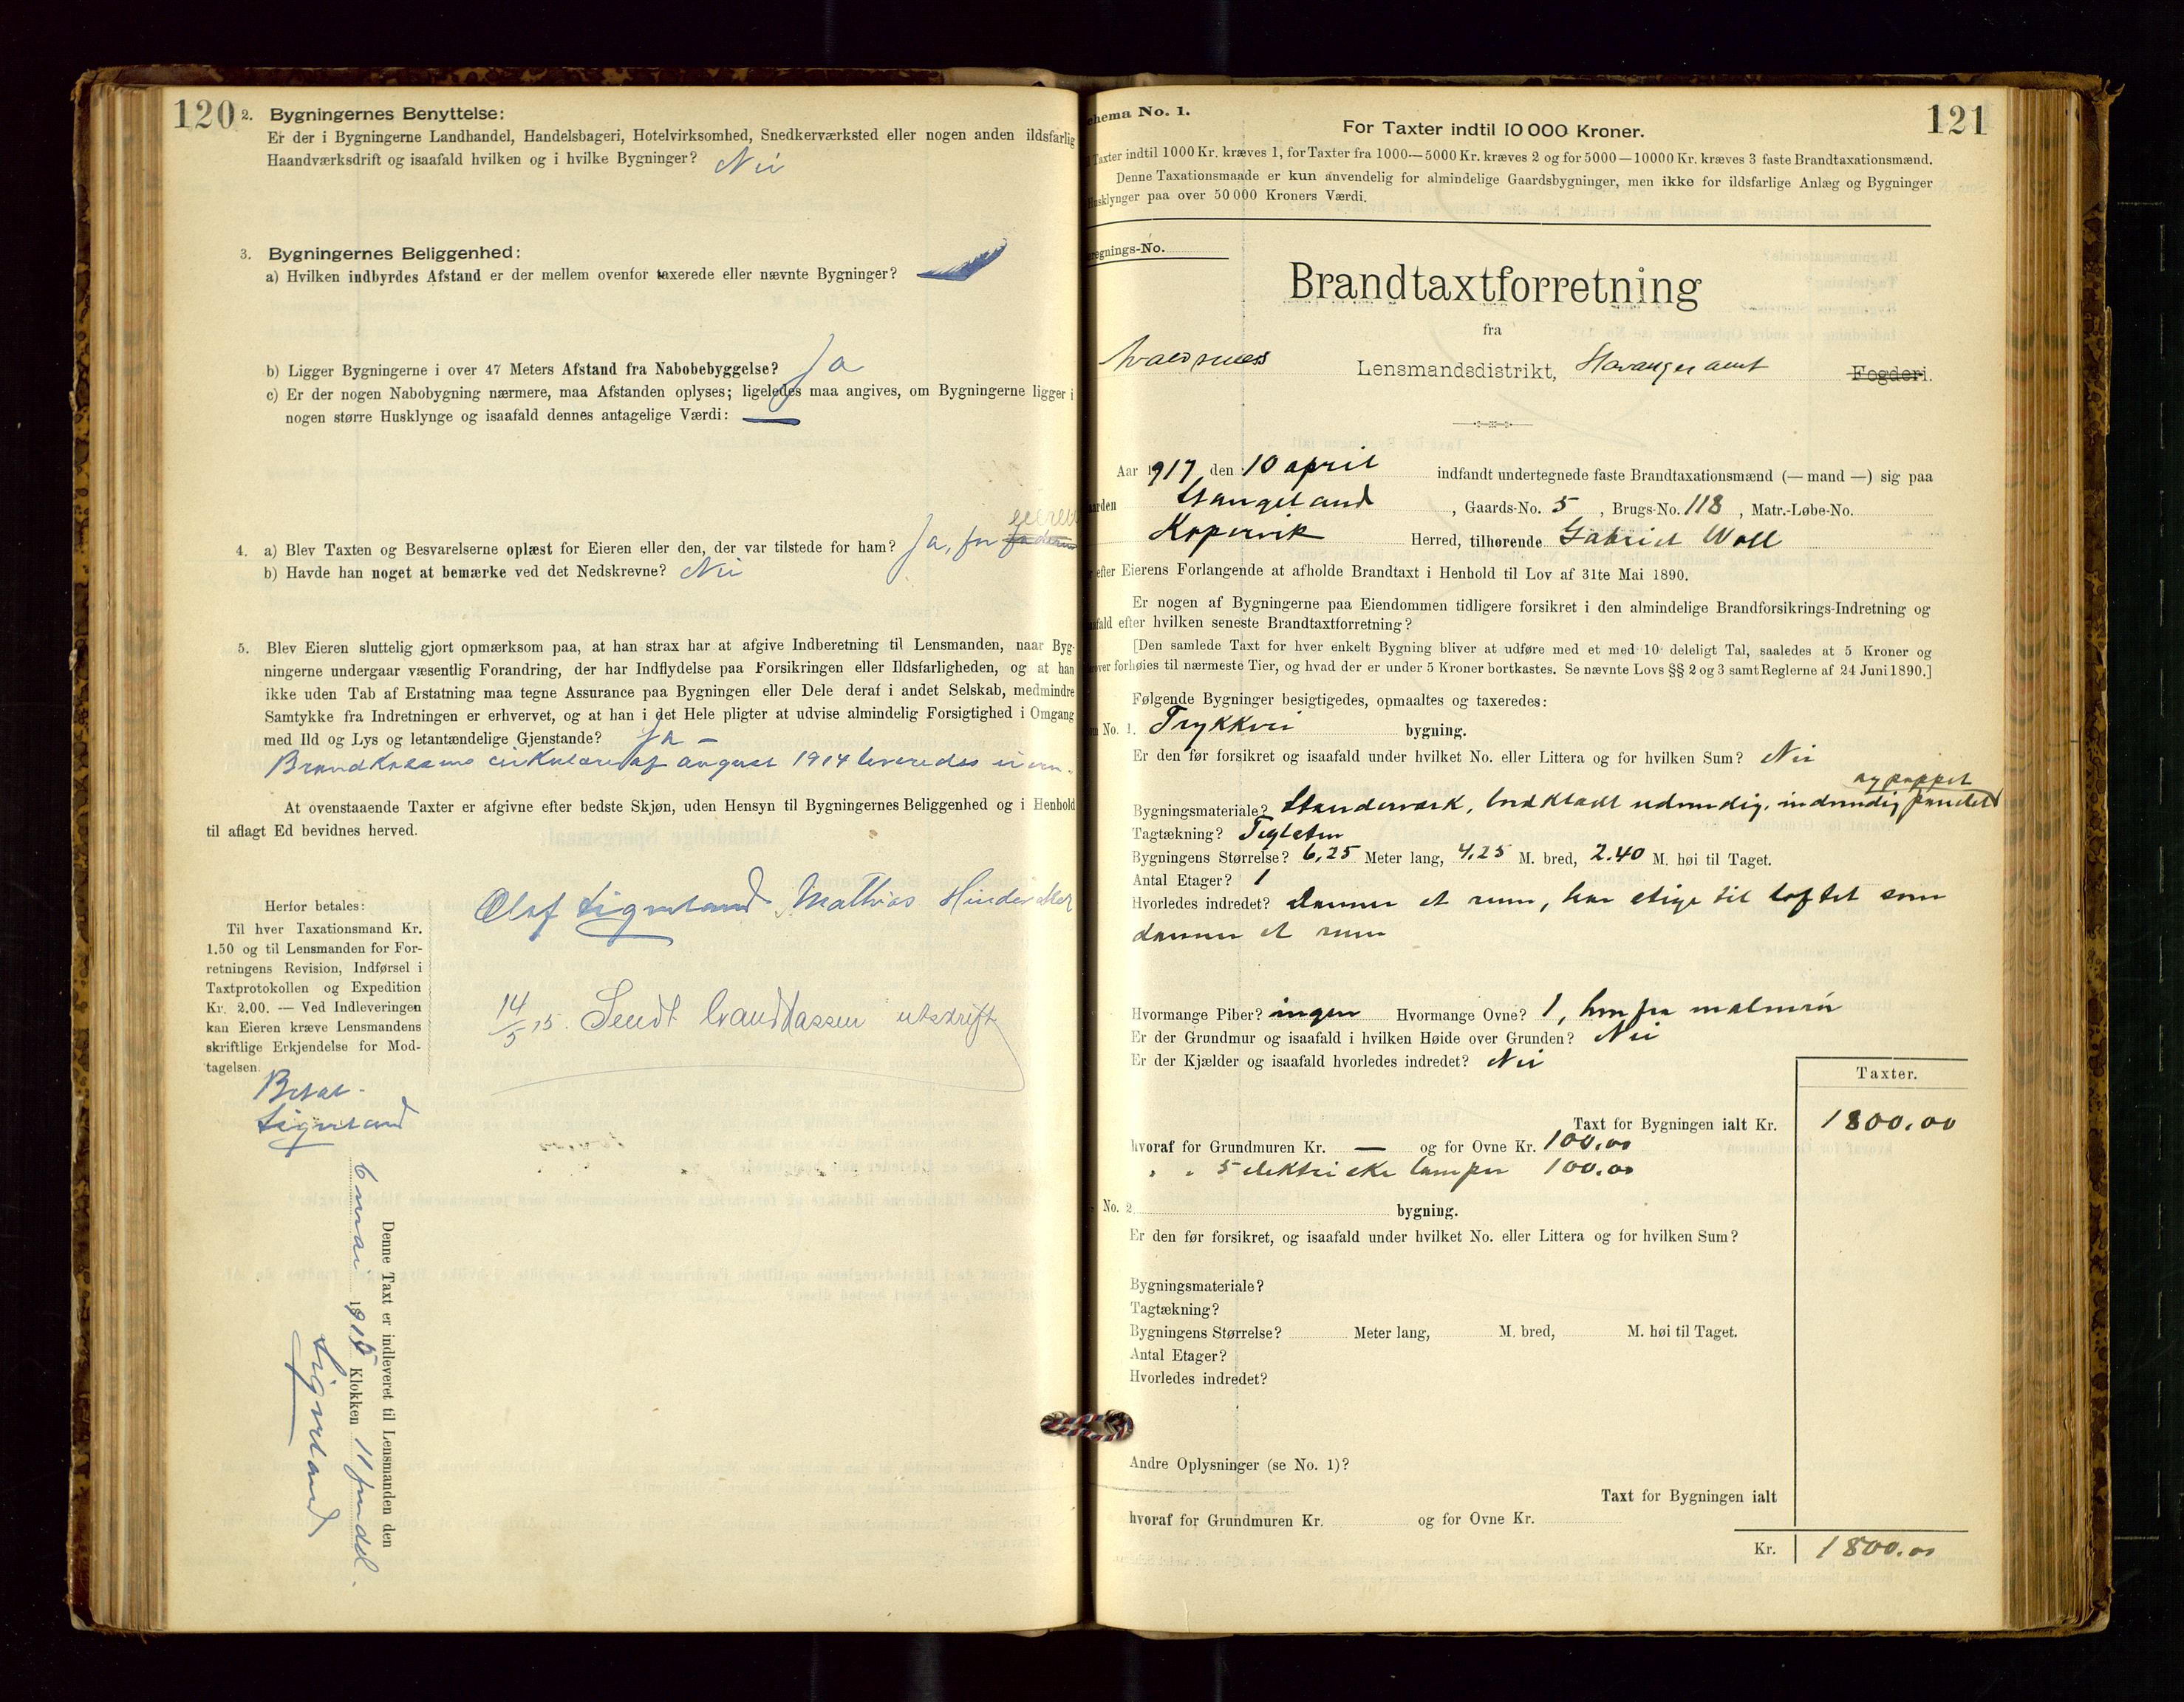 120
2. Bygningernes Benyttelse:
Er der i Bygningerne Landhandel, Handelsbageri, Hotelvirksomhed, Snedkerværksted eller nogen anden ildsfarlig
Haandværksdrift og isaafald hvilken og i hvilke Bygninger? Nei
3. Bygningernes Beliggenhed:
a) Hvilken indbyrdes Afstand er der mellem ovenfor taxerede eller nævnte Bygninger?
b) Ligger Bygningerne i over 47 Meters Afstand fra Nabobebyggelse? Ja
c) Er der nogen Nabobygning nærmere, maa Afstanden oplyses; ligeledes maa angives, om Bygningerne ligger i
nogen større Husklynge og isaafald dennes antagelige Værdi: —
eieren
4. a) Blev Taxten og Besvarelserne oplæst for Eieren eller den, der var tilstede for ham? Ja, for
b) Havde han noget at bemærke ved det Nedskrevne? Nei
5. Blev Eieren sluttelig gjort opmærksom paa, at han strax har at afgive Indberetning til Lensmanden, naar Byg-
ningerne undergaar væsentlig Forandring, der har Indflydelse paa Forsikringen eller Ildsfarligheden, og at han
ikke uden Tab af Erstatning maa tegne Assurance paa Bygningen eller Dele deraf i andet Selskab, medmindre
Samtykke fra Indretningen er erhvervet, og at han i det Hele pligter at udvise almindelig Forsigtighed i Omgang
med Ild og Lys og letantændelige Gjenstande? Ja –
Brandkassens cirkulære af august 1914 leveredes eieren.
At ovenstaaende Taxter er afgivne efter bedste Skjøn, uden Hensyn til Bygningernes Beliggenhed og i Henhold
til aflagt Ed bevidnes herved.
Olaf Sigveland Mathias
Herfor betales:
Til hver Taxationsmand Kr.
1.50 og til Lensmanden for For-
retningens Revision, Indførsel i
Taxtprotokollen og Expedition
Kr. 2.00. — Ved Indleveringen
kan Eieren kræve Lensmandens
skriftlige Erkjendelse for Mod-
tagelsen.
14/5 15. Sendt brandkassen utskrift
Betal-
Sigveland
Denne Taxt er indleveret til Lensmanden den
6 mai 1915 Klokken 11 formdd.
Sigveland
121
chema No. 1.
For Taxter indtil 10 000 Kroner.
Taxter indtil 1000 Kr. kræves 1, for Taxter fra 1000—5000 Kr. kræves 2 og for 5000—10000 Kr. kræves 3 faste Brandtaxationsmænd.
Denne Taxationsmaade er kun anvendelig for almindelige Gaardsbygninger, men ikke for ildsfarlige Anlæg og Bygninger
Husklynger paa over 50 000 Kroners Værdi.
regnings-No.
Brandtaxtforretning
fra
Avaldsnes Lensmandsdistrikt, Stavanger amt Fogderi.
Aar 1917 den 10 april indfandt undertegnede faste Brandtaxationsmænd (—mand—) sig paa
arden Stangeland, Gaards-No. 5, Brugs-No. 118, Matr.-Løbe-No.
Kopervik Herred, tilhørende Gabriel Woll
efter Eierens Forlangende at afholde Brandtaxt i Henhold til Lov af 31te Mai 1890.
Er nogen af Bygningerne paa Eiendommen tidligere forsikret i den almindelige Brandforsikrings-Indretning og
afald efter hvilken seneste Brandtaxtforretning?
[Den samlede Taxt for hver enkelt Bygning bliver at udføre med et med 10 deleligt Tal, saaledes at 5 Kroner og
over forhøies til nærmeste Tier, og hvad der er under 5 Kroner bortkastes. Se nævnte Lovs §§ 2 og 3 samt Reglerne af 24 Juni 1890.]
Følgende Bygninger besigtigedes, opmaaltes og taxeredes:
No. 1. Trykkeri bygning.
Er den før forsikret og isaafald under hvilket No. eller Littera og for hvilken Sum? Nei
og pappet
Bygningsmateriale? Standerværk, bordklædt udvendig, indvendig panelet
Tagtækning? Teglsten
Bygningens Størrelse? 6,25 Meter lang, 4,25 M. bred, 2.40 M. høi til Taget.
Antal Etager? 1
Hvorledes indredet? Danner et rum, har stige til loftet som
danner et rum
Hvormange Piber? ingen Hvormange Ovne? 1,
Er der Grundmur og isaafald i hvilken Høide over Grunden? Nei
Er der Kjælder og isaafald hvorledes indredet? Nei
Taxter.
Taxt for Bygningen ialt Kr. 1800.00
hvoraf for Grundmuren Kr. — og for Ovne Kr. 100.00
" " 5 elektriske lamper 100.00
No. 2 bygning.
Er den før forsikret, og isaafald under hvilket No. eller Littera og for hvilken Sum?
Bygningsmateriale?
Tagtækning?
Bygningens Størrelse? Meter lang, M. bred, M. høi til Taget.
Antal Etager?
Hvorledes indredet?
Andre Oplysninger (se No. 1)?
Taxt for Bygningen ialt
hvoraf for Grundmuren Kr. og for Ovne Kr.
Kr. 1800.00